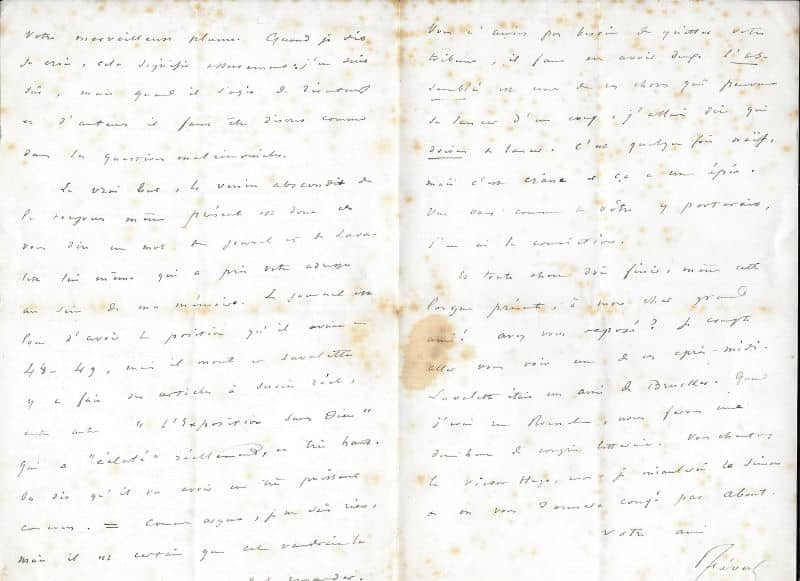 votre merveilleuse plume. Quand je dis
je crois, cela signifie assurément: j'en suis
sûr, mais quand il s'agit de directeurs
et d'auteurs il faut être discret comme
dans les questions matrimoniales.
Le vrai but, le venin abscondit de
la toujours même présent est donc de
vous dire un mot du journal et de Lava-
lette lui même qui a pris votre adresse
au sein de ma mémoire. Le journal est
loin d'avoir la position qu'il avait en
48-49, mais il monte et Lavalette
y a fait des articles à succès réel,
entre autre "L'Exposition sans Dieu"
qui a "éclaté" réellement, et très haut.
On dit qu'il va avoir un très puissant
concours. = Comme argent, je ne sais rien,
mais il est certain que cela vaudrait la
regarder.
Vous n'aurez pas besoin de quitter votre
tribune, il faut en avoir deux.
est une de ces choses qui peuvent
se lancer d'un coup, j'allais dire qui
doivent se lancer. C'est quelque fois naïf,
mais c'est crâne et ça a une épée.
Une voix comme la vôtre y porterait,
j'en ai la conviction.
Et toute chose doit finir, même cette
lorgue présent, ô mon cher grand
ami! avez vous reposé? Je compte
aller vous voir une de ces après-midi.
Lavalette était un ami de Brucker. Quand
j'aurai un, nous ferons une
de congrès littéraire. Vous chanterez
le Victor Hugo, moi je miaulerai le Simon
et on vous donnera congé par About.
Votre ami
Féval